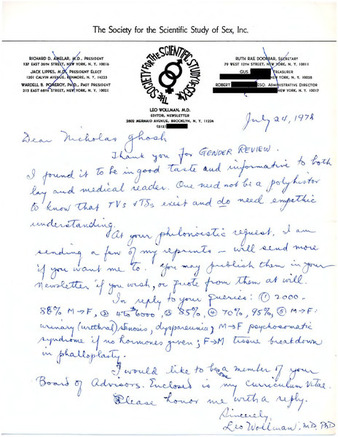 The Society for the Scientific Study of Sex, Inc.
RICHARD D. AMELAR, M.D., PRESIDENT
137 EAST 36TH STREET, NEW YORK, N. Y. 10016
JACK LIPPES, M.D., PRESIDENT ELECT
WARDELL B. POMEROY, PH.D., PAST PRESIDENT
NEW YORK, N. Y.
THE SOCIETY FOR THE SCIENTIFIC STUDY OF SEX, INC.
SECRETARY
NEW YORK, N. Y.
GUS TREASURER
ROBERT ADMINISTRATIVE DIRECTOR
LEO WOLLMAN, M.D.
EDITOR, NEWSLETTER
2802 MERMAID AVENUE, BROOKLYN, N. Y. 11224
July 24, 1978
Dear Nicholas Ghosh
Thank you for GENDER REVIEW.
I found it to be in good taste and informative to both
lay and medical reader. One need not be a polyhistor
to know that TVs & TSs exist and do need empathic
understanding.
At your request, I am
sending a few of my reprints – will send more
if you want me to. You may publish them in your
Newsletter if you wish, or quote from them at will.
In reply to your queries: ① 2000.
88% M→F, ③ 85%, ④ 70%, 95%, M→F:
urinary (urethral) stenosis, dyspareunia; M→F psychosomatic
syndrome if no hormones given; F→M tissue breakdown
in phalloplasty.
I would like to be a member of your
Board of Advisors. Enclosed is my curriculum vitae.
Please honor me with a reply.
Sincerely,
Leo Wollman, M.D., PhD